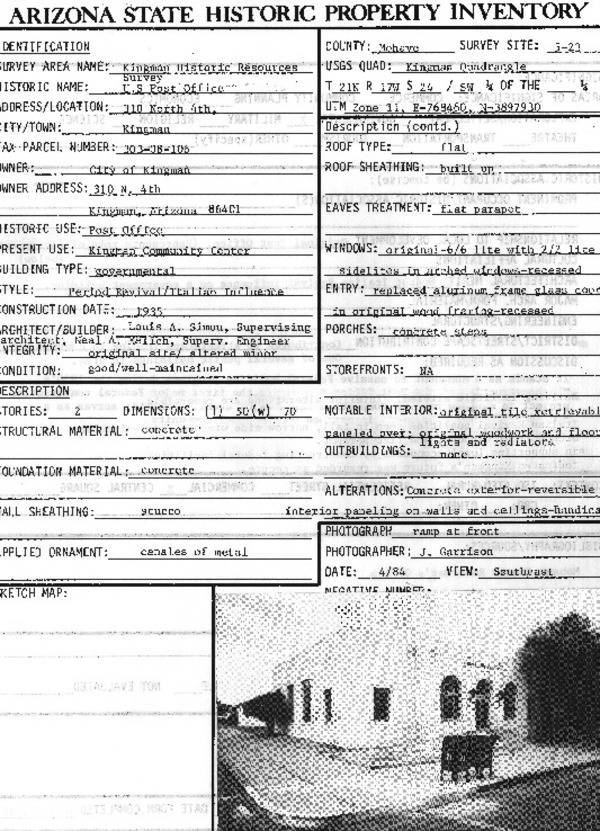 ARIZONA STATE HISTORIC PROPERTY INVENTORY
DENTIFICATION
SURVEY AREA NAME: Kingman Historic Resources
Survey
HISTORIC NAME: U.S Post Office
ADDRESS/LOCATION: 310 North 4th,
CITY/TOWN: Kingman
TAX PARCEL NUMBER: 303-08-106
OWNER: City of Kingman
OWNER ADDRESS: 310 N. 4th
Kingman, Arizona 86401
HISTORIC USE: Post Office
PRESENT USE: Kingman Community Center
BUILDING TYPE: governmental
STYLE: Period Revival/Italian Influence
CONSTRUCTION DATE: 1935
ARCHITECT/BUILDER: Louis A. Simon, Supervising
architect, Neal A. Superv. Engineer
NTEGRITY: original site/ altered minor
CONDITION: good/well-maintained
DESCRIPTION
STORIES: 2 DIMENSIONS: (l) 50(w) 70
STRUCTURAL MATERIAL: concrete
FOUNDATION MATERIAL: concrete
ALL SHEATHING: stucco
APPLIED ORNAMENT: canales of metal
SKETCH MAP:
COUNTY: Mohave SURVEY SITE: 5-23
USGS QUAD: Kingman Quadrangle
T 21N R 17W S 24 / SW ¼ OF THE ¼
UTM Zone 11, E-769460, N-3897930
Description (contd.)
ROOF TYPE: flat
ROOF SHEATHING: built up
EAVES TREATMENT: flat parapet
WINDOWS: original-6/6 lite with 2/2 lite
sidelites in arched windows-recessed
ENTRY: replaced aluminum frame glass
in original wood framing-recessed
PORCHES: concrete steps
STOREFRONTS: NA
NOTABLE INTERIOR: original tile
paneled over; original woodwork and floor
lights and radiators
OUTBUILDINGS: none
ALTERATIONS: Concrete exterior-reversible
interior paneling on walls and ceilings-handica
PHOTOGRAPH ramp at front
PHOTOGRAPHER: J. Garrison
DATE: 4/84 VIEW: Southeast
NEGATIVE NUMBER: